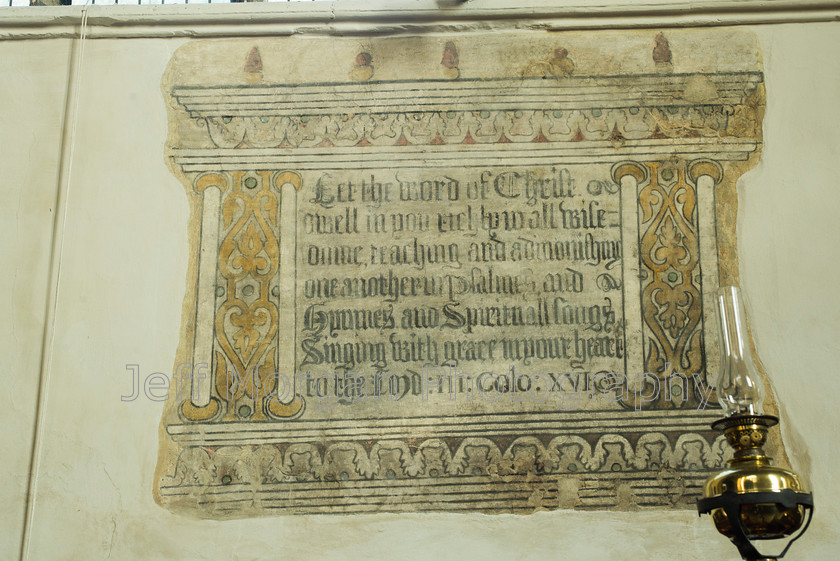 Let the word of Christ
dwell in you richly in all wise=
dome, teaching and admonishing
one another in psalmes, and
Hymnes and Spirituall songs
Singing with grace in your heart
to the Lord: III: Colo: XVI
Jeff Photography